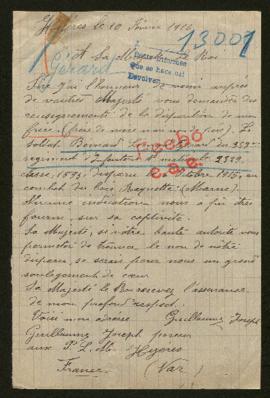 Hyères le 10 Février 1916
13001
A Sa Majesté le Roi
Gérard
Para informe
Que se hace así
Devolver
Sire j'ai l'honneur de venir auprès
de votre Majesté vous demander des
renseignements de la disparition de mon
frère (frère de mère non
soldat Bernard du 359me
regiment d'infanterie Nº matricule 2329
classe 1893 disparu Octobre 1915, au
combat du bois Raquette (Marne).
Aucune indication nous a pu être
fournir, sur sa captivité.
Fecho
Sa Majesté, si votre haute autorité vous
permeter de trouver le nom de notre
disparu, se serais pour nous un grand
soulagement de cœur
Sa Majesté le Roi recevez l'assurance
de mon profond respect.
Voici mon adresse Guillaume Joseph
Guillaume Joseph
aux P. L. M. Hyères
France (Var)